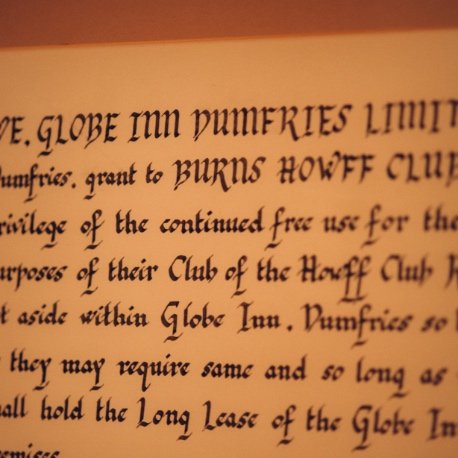 WE, GLOBE INN DUMFRIES LIMIT
Dumfries, grant to BURNS HOWFF CLUB
rivilege of the continued free use for the
urposes of their Club of the Howff Club R
t aside within Globe Inn, Dumfries so
they may require same and so long as
all hold the Long Lease of the Globe In
remises